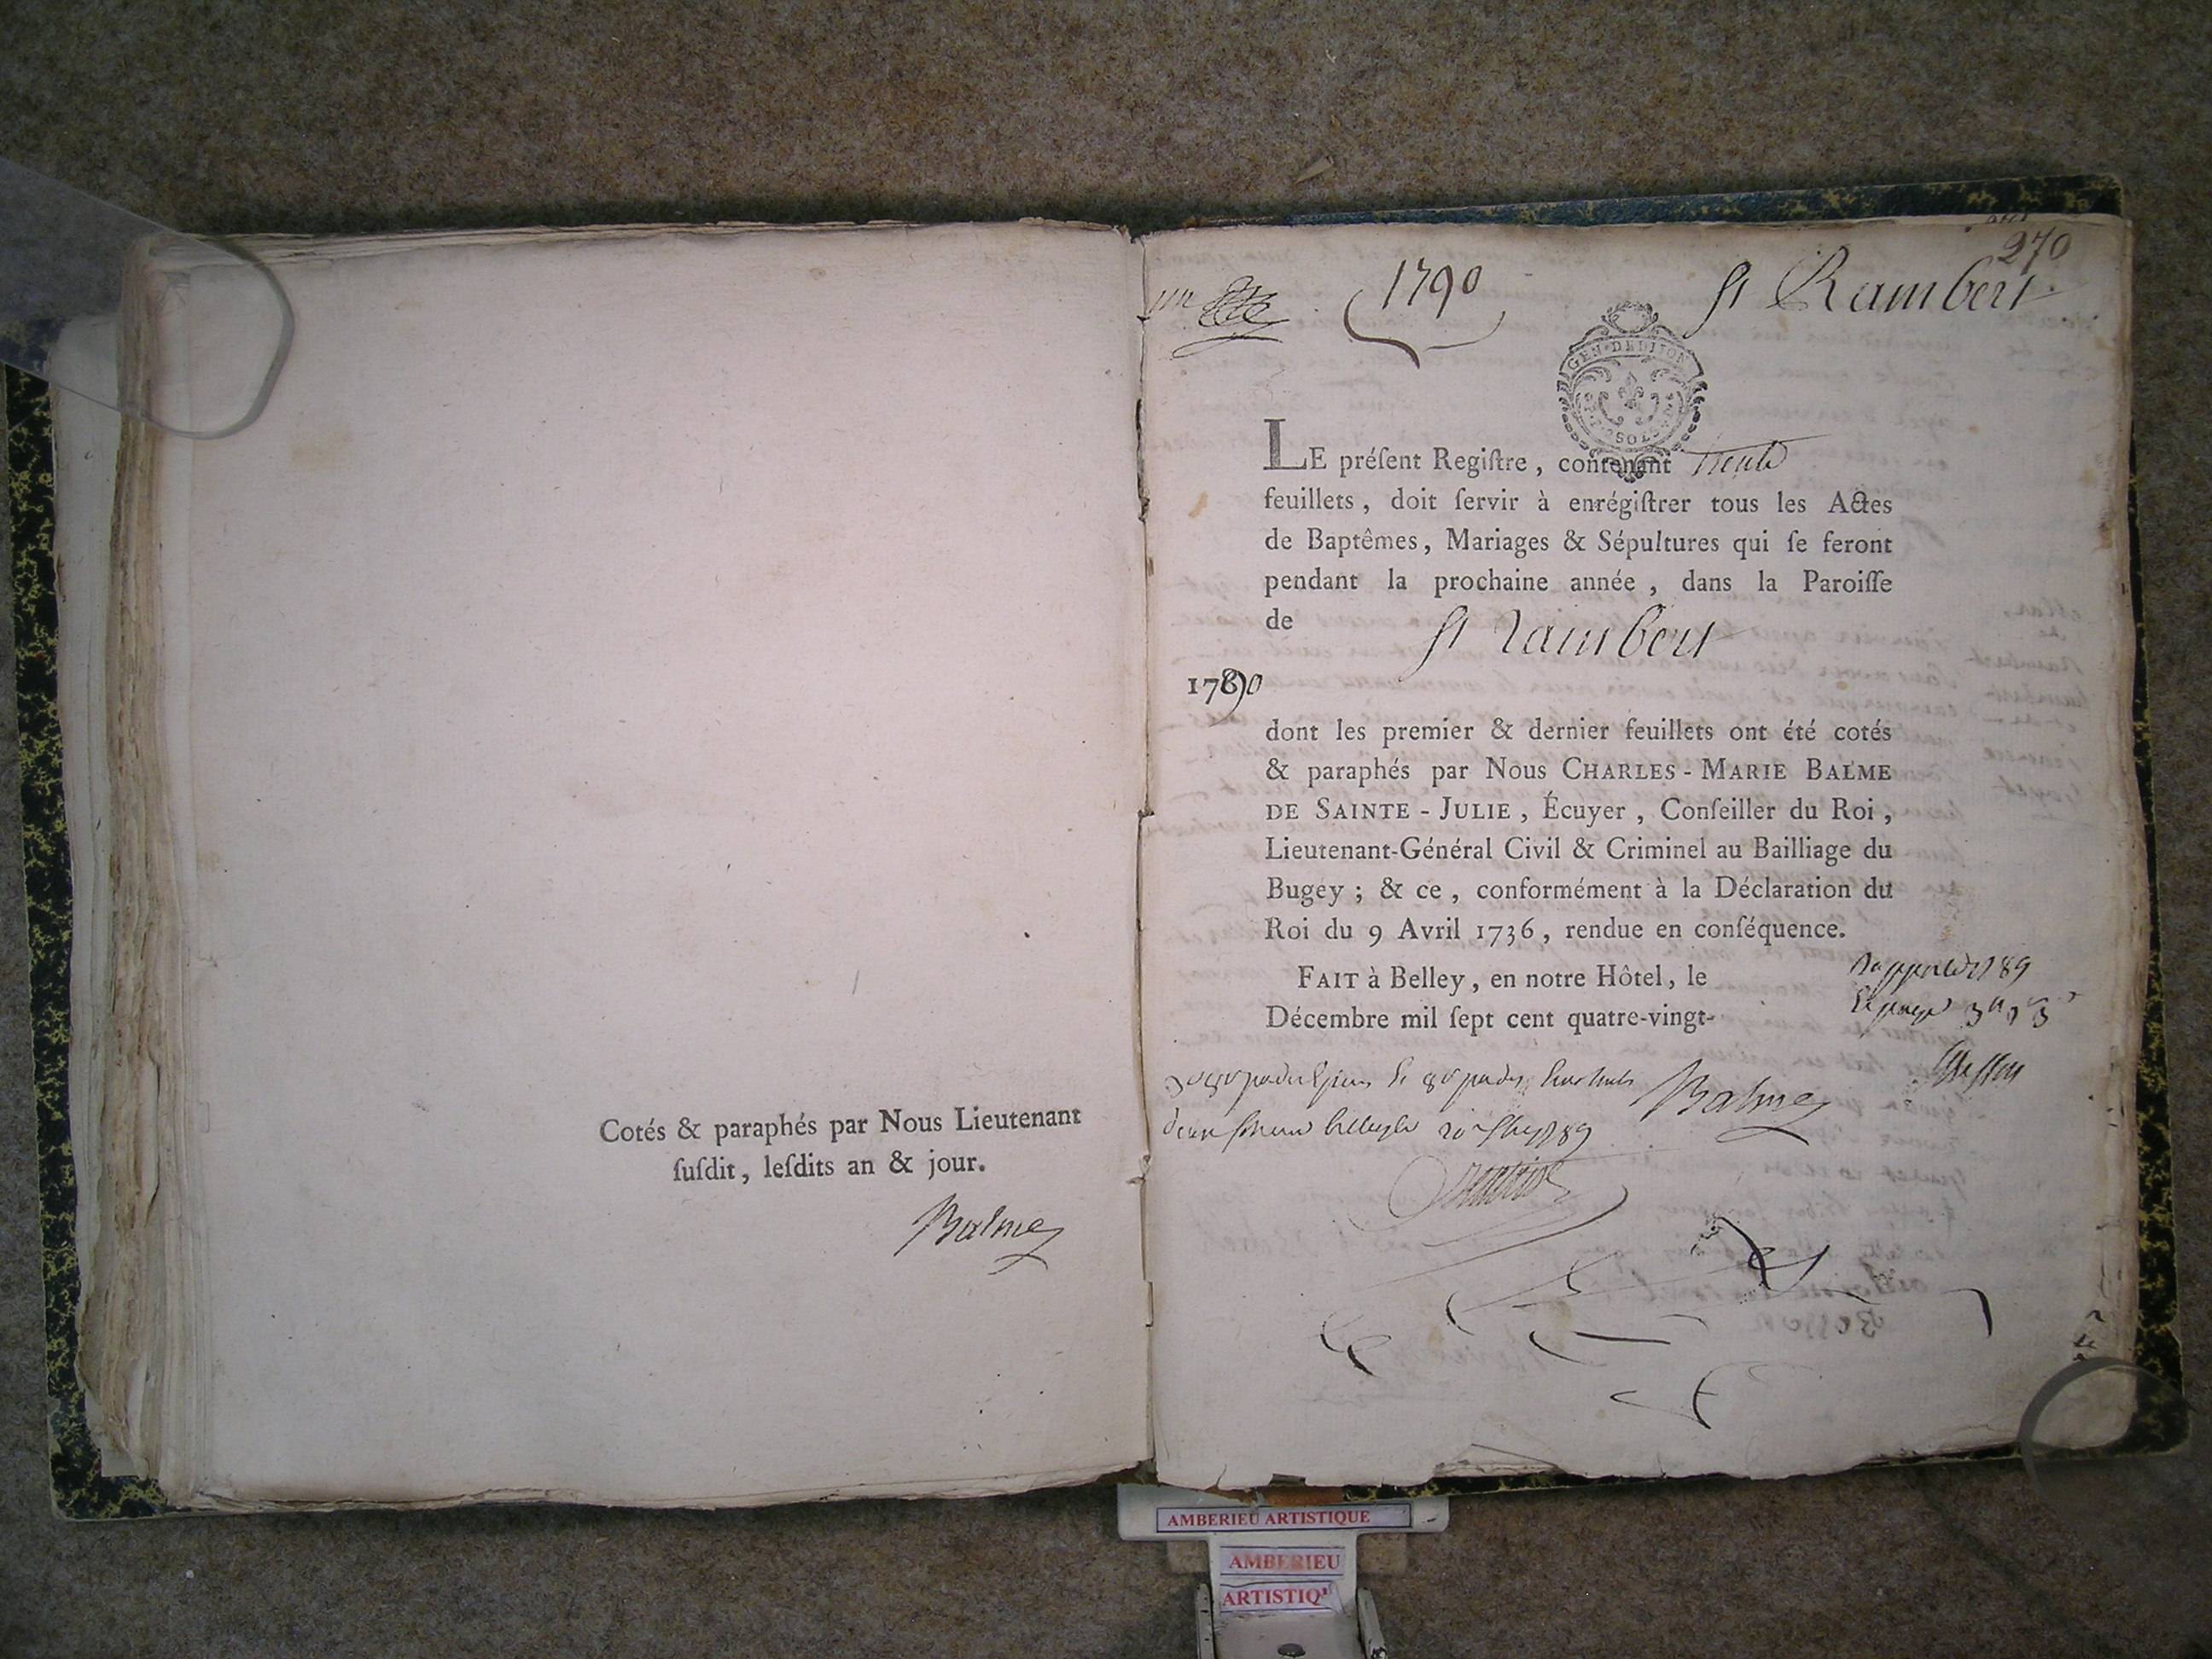 Cotés & paraphés par Nous Lieutenant
ſuſdit, leſdits an & jour.
Balme
270
un
1790
St Rambert
GEN. DE DIJON
SOLS
LE préſent Regiſtre, contenant trente
feuillets, doit ſervir à enrégiſtrer tous les Actes
de Baptêmes, Mariages & Sépultures qui ſe feront
pendant la prochaine année, dans la Paroiſſe
de St Rambert
1790
dont les premier & dernier feuillets ont été cotés
& paraphés par Nous CHARLES-MARIE BALME
DE SAINTE-JULIE, Écuyer, Conſeiller du Roi,
Lieutenant-Général Civil & Criminel au Bailliage du
Bugey; & ce, conformément à la Déclaration du
Roi du 9 Avril 1736, rendue en conſéquence.
FAIT à Belley, en notre Hôtel, le
Décembre mil ſept cent quatre-vingt-
Balme
AMBERIEU ARTISTIQUE
AMBERIEU
ARTISTIQ'